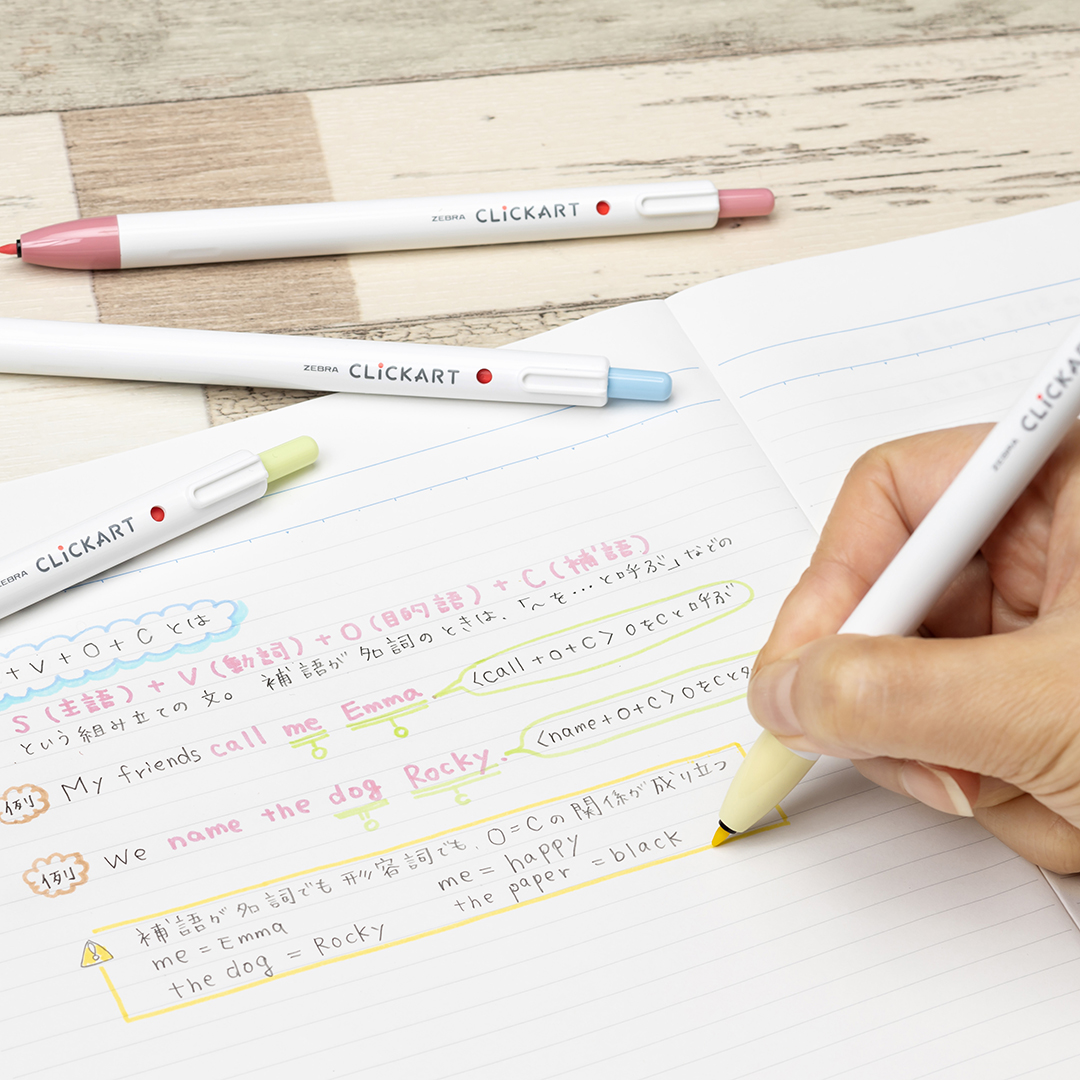 ZEBRA CLiCKART
ZEBRA CLiCKART
ZEBRA CLiCKART
ZEBRA CLICKA
+ V + O + C とは
S (主語) + V (動詞) + O (目的語) + C (補語)
という組み立ての文。 補語が名詞のときは、「〜を…と呼ぶ」などの
例 My friends call me Emma. <call + O + C> OをCと呼ぶ
例 We name the dog Rocky. <name + O + C> OをCと
補語が名詞でも形容詞でも、O=Cの関係が成り立つ
me = Emma me = happy
the dog = Rocky the paper = black